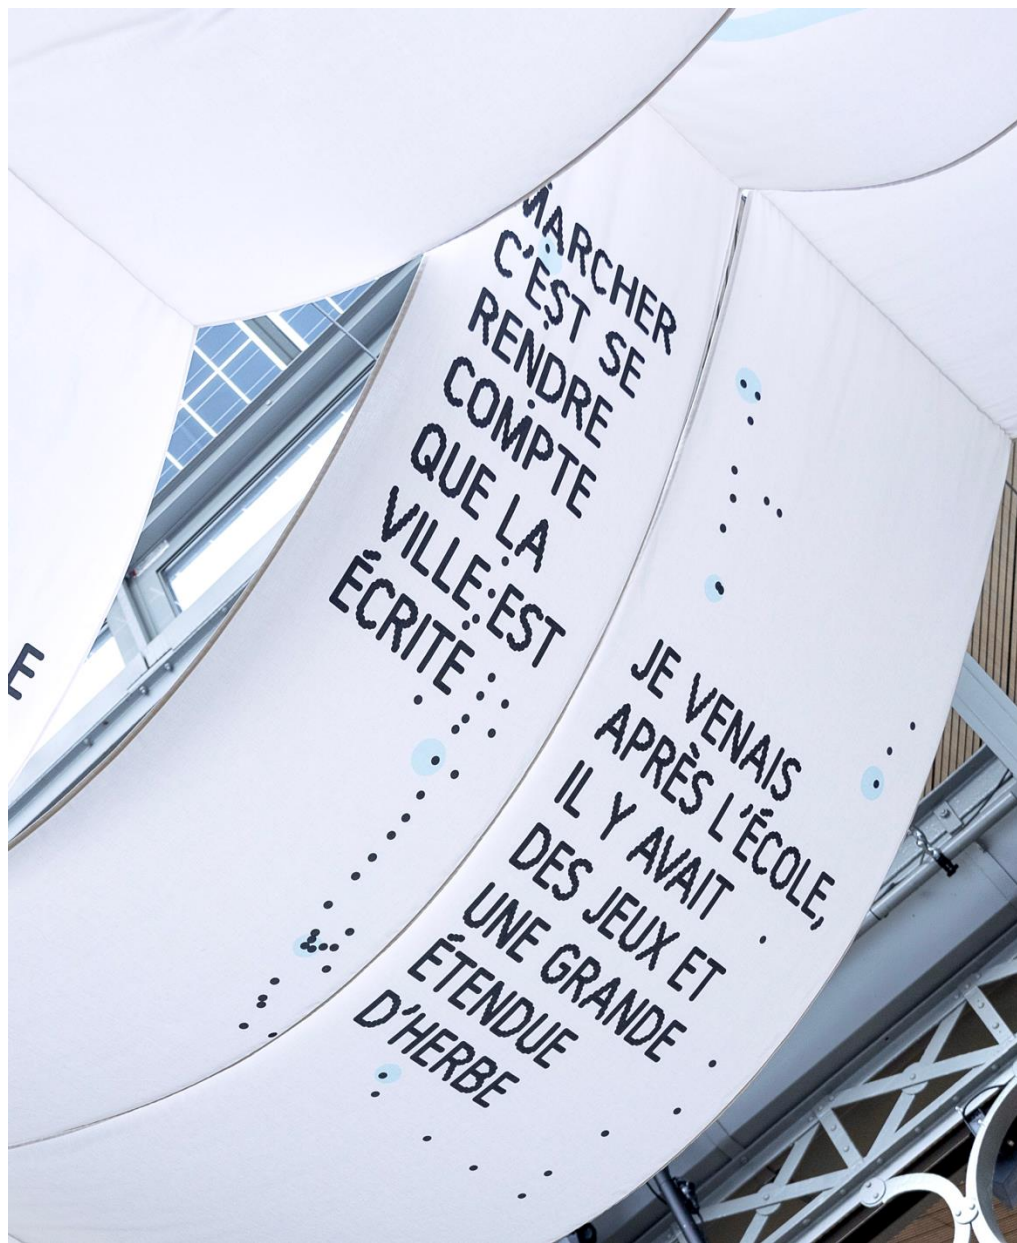 MARCHER
C'EST SE
RENDRE
COMPTE
QUE LA
VILLE EST
ÉCRITE
JE VENAIS
APRÈS L'ÉCOLE,
IL Y AVAIT
DES JEUX ET
UNE GRANDE
ÉTENDUE
D'HERBE
E